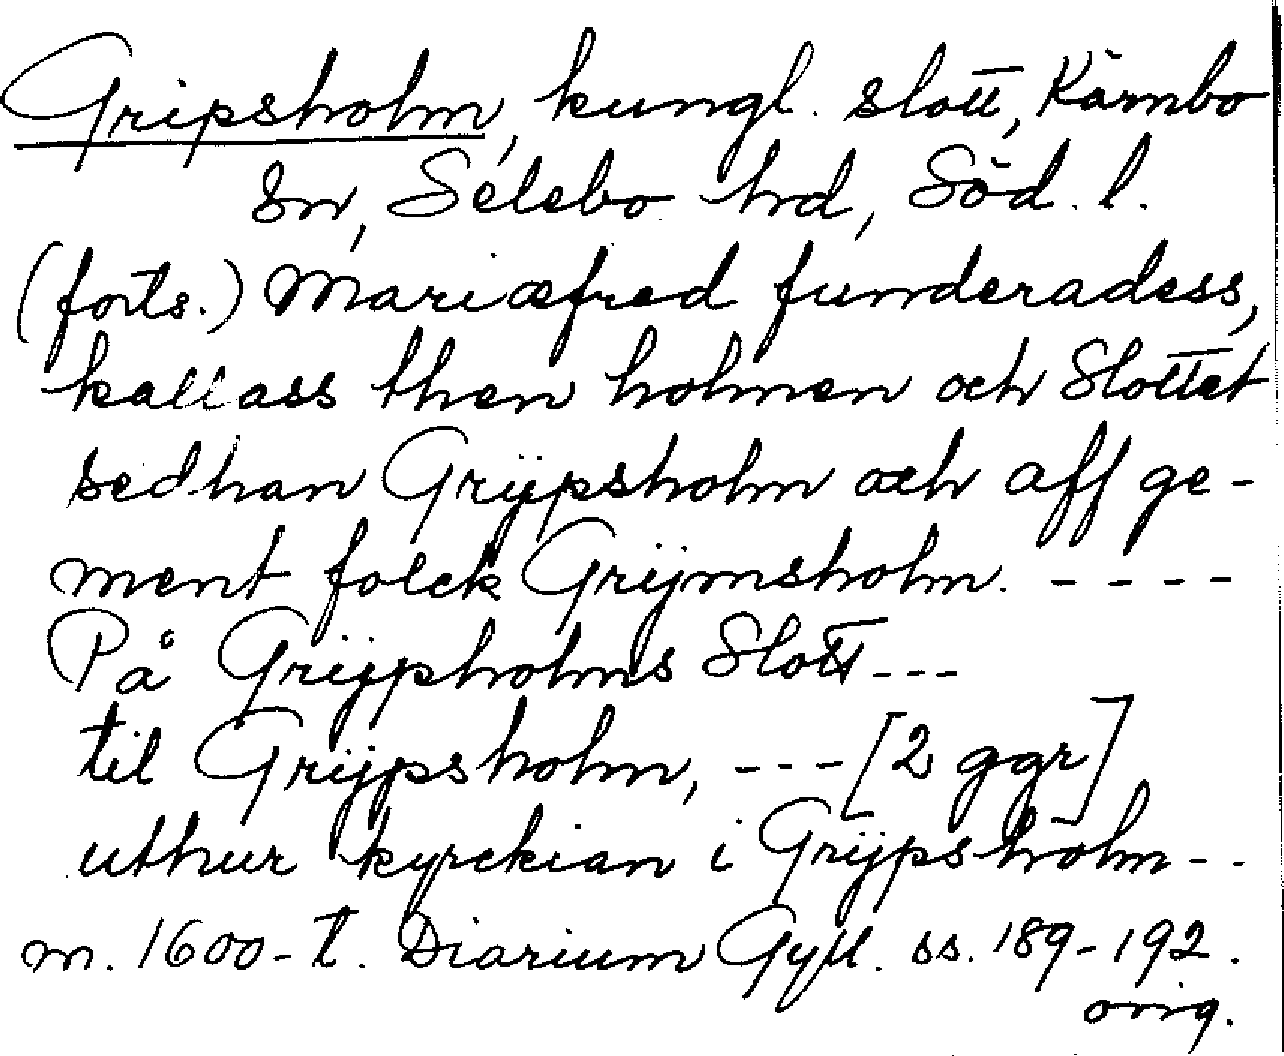 Gripsholm, kungl. slott, Kärnbo
sn, Selebo hrd, Söd. l.
(forts.) Mariæfred funderadess,
kallass then holmen och Slottet
sedhan Grijpsholm och aff ge-
ment folck Grijmsholm. - - - -
På Grijpholms Slott - - -
til Grijpsholm, - - - [2 ggr]
uthur kyrckian i Grijpsholm - -
m. 1600-t. Diarium Gyll. ss. 189-192.
orig.